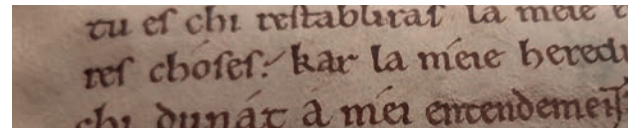 tu eſ chi reſtabliraſ la meie e
reſ choſeſ.́ kar la méie heredi
chi dunát á méi entendemen